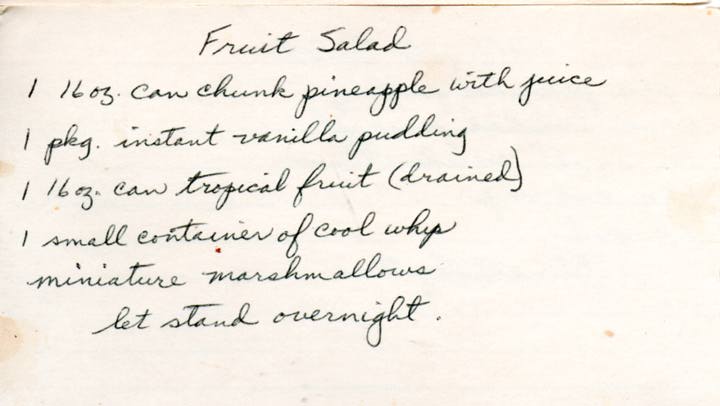 Fruit Salad
1 16 oz. can chunk pineapple with juice
1 pkg. instant vanilla pudding
1 16 oz. can tropical fruit (drained)
1 small container of cool whip
miniature marshmallows
let stand overnight.